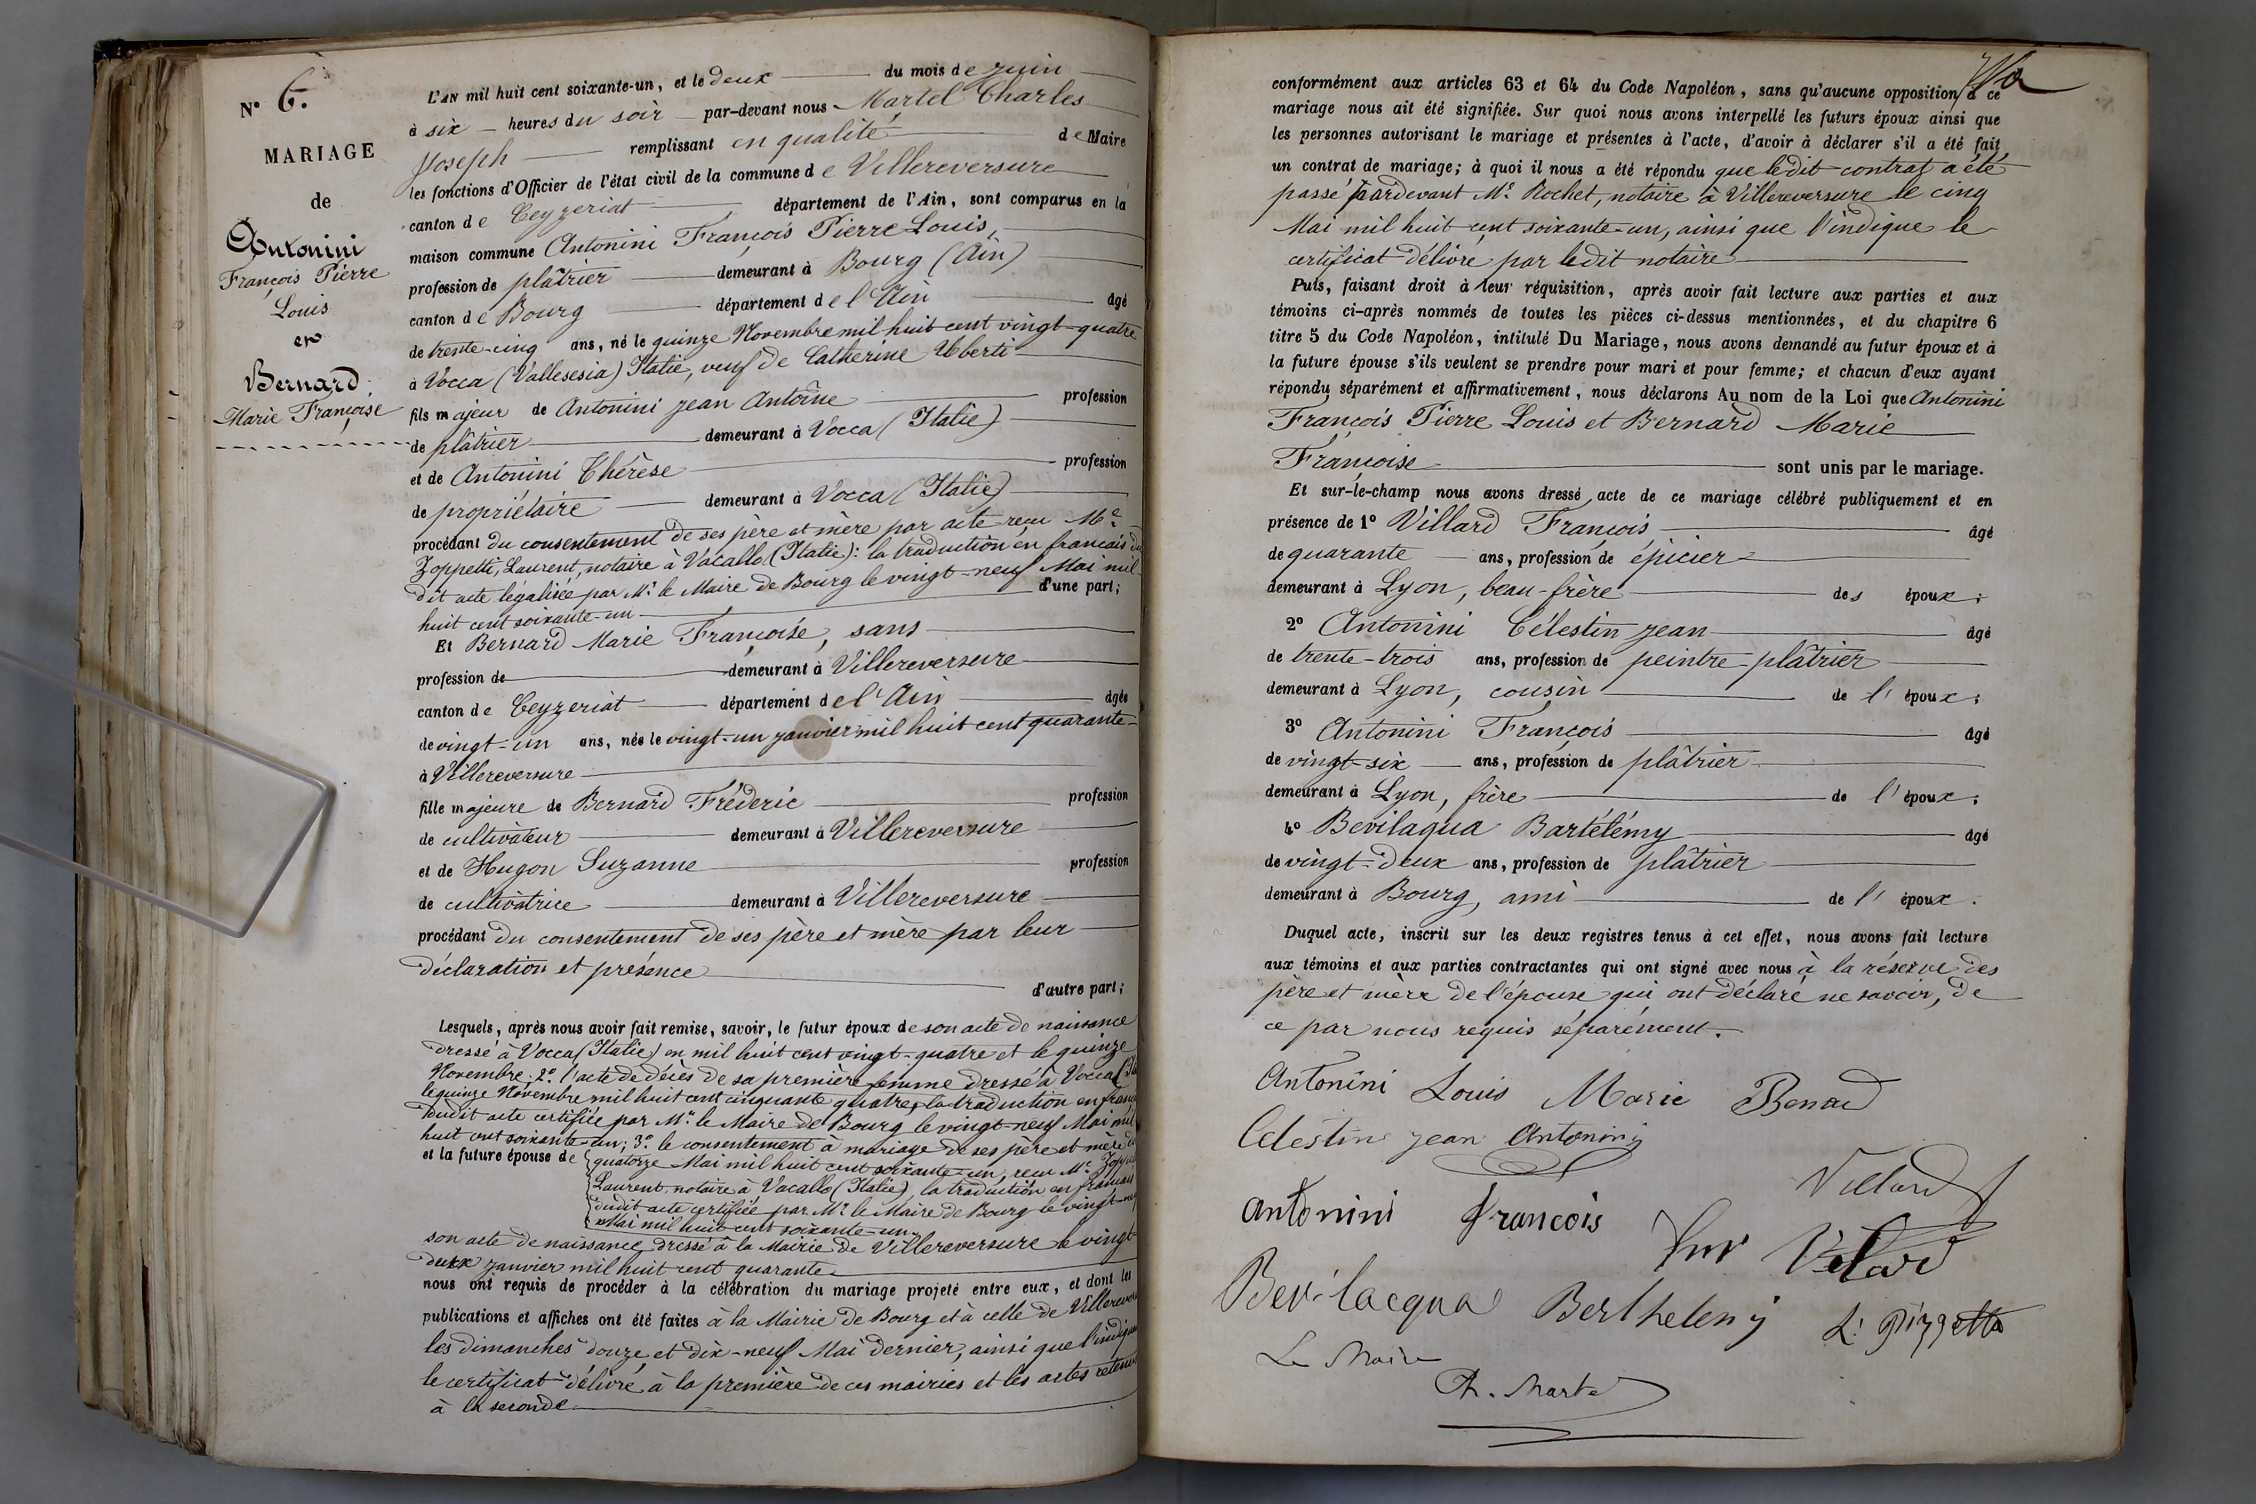 N° 6.
MARIAGE
de
Antonini
François Pierre
Louis
et
Bernard
Marie Françoise
L'AN mil huit cent soixante-un, et le deux du mois de juin
à six heures du soir par-devant nous Martel Charles
Joseph remplissant en qualité de Maire
les fonctions d'Officier de l'état civil de la commune de Villereversure
canton de Ceyzeriat département de l'Ain, sont comparus en la
maison commune Antonini François Pierre Louis,
profession de plâtrier demeurant à Bourg (Ain)
canton de Bourg département de l'Ain âgé
de trente-cinq ans, né le quinze Novembre mil huit cent vingt-quatre
à Vocca (Vallesesia) Italie, veuf de Catherine Uberti
fils majeur de Antonini Jean Antoine profession
de plâtrier demeurant à Vocca (Italie)
et de Antonini Thérèse profession
de propriétaire demeurant à Vocca (Italie)
procédant du consentement de ses père et mère par acte reçu Me
Zoppetti, Laurent, notaire à Vacallo (Italie): la traduction en français du
dit acte légalisée par Mr le Maire de Bourg le vingt-neuf Mai mil
huit cent soixante-un d'une part;
Et Bernard Marie Françoise, sans
profession de demeurant à Villereversure
canton de Ceyzeriat département de l'Ain âgée
de vingt-un ans, née le vingt-un janvier mil huit cent quarante
à Villereversure
fille majeure de Bernard Fréderic profession
de cultivateur demeurant à Villereversure
et de Hugon Suzanne profession
de cultivatrice demeurant à Villereversure
procédant du consentement de ses père et mère par leur
déclaration et présence
d'autre part;
Lesquels, après nous avoir fait remise, savoir, le futur époux de son acte de naissance
dressé à Vocca (Italie) en mil huit cent vingt-quatre et le quinze
Novembre; 2° l'acte de décès de sa première femme dressé à Vocca
le quinze Novembre mil huit cent cinquante quatre, la traduction en
dudit acte certifiée par Mr le Maire de Bourg le vingt-neuf Mai mil
huit cent soixante-un; 3° le consentement à mariage de ses père et mère
et la future épouse de quatorze Mai mil huit cent soixante-un, reçu Me
Laurent, notaire à Vacallo (Italie), la traduction en français
dudit acte certifiée par Mr le Maire de Bourg le vingt-neuf
Mai mil huit cent soixante-un
son acte de naissance dressé à la Mairie de Villereversure le vingt-
deux janvier mil huit cent quarante
nous ont requis de procéder à la célébration du mariage projeté entre eux, et dont les
publications et affiches ont été faites à la Mairie de Bourg et à celle de
les dimanches douze et dix-neuf Mai dernier, ainsi que l'indique
le certificat délivré à la première de ces mairies et les actes retenus
à la seconde
conformément aux articles 63 et 64 du Code Napoléon, sans qu'aucune opposition à ce
mariage nous ait été signifiée. Sur quoi nous avons interpellé les futurs époux ainsi que
les personnes autorisant le mariage et présentes à l'acte, d'avoir à déclarer s'il a été fait
un contrat de mariage; à quoi il nous a été répondu que ledit contrat a été
passé pardevant Me Rochet, notaire à Villereversure le cinq
Mai mil huit cent soixante-un, ainsi que l'indique le
certificat délivré par ledit notaire
Puis, faisant droit à leur réquisition, après avoir fait lecture aux parties et aux
témoins ci-après nommés de toutes les pièces ci-dessus mentionnées, et du chapitre 6
titre 5 du Code Napoléon, intitulé Du Mariage, nous avons demandé au futur époux et à
la future épouse s'ils veulent se prendre pour mari et pour femme; et chacun d'eux ayant
répondu séparément et affirmativement, nous déclarons Au nom de la Loi que Antonini
François Pierre Louis et Bernard Marie
Françoise sont unis par le mariage.
Et sur-le-champ nous avons dressé acte de ce mariage célébré publiquement et en
présence de 1° Villard François âgé
de quarante ans, profession de épicier
demeurant à Lyon, beau-frère des époux;
2° Antonini Célestin Jean âgé
de trente-trois ans, profession de peintre-plâtrier
demeurant à Lyon, cousin de l'époux;
3° Antonini François âgé
de vingt-six ans, profession de plâtrier
demeurant à Lyon, frère de l'époux;
4° Bevilaqua Bartélémy âgé
de vingt-deux ans, profession de plâtrier
demeurant à Bourg, ami de l'époux.
Duquel acte, inscrit sur les deux registres tenus à cet effet, nous avons fait lecture
aux témoins et aux parties contractantes qui ont signé avec nous à la réserve des
père et mère de l'épouse qui ont déclaré ne savoir, de
ce par nous requis séparément.
Antonini Louis Marie Benard
Celestin jean Antonini
Villard
antonini francois
Bevilacqua Berthelemy
Le Maire
Ch. Martel